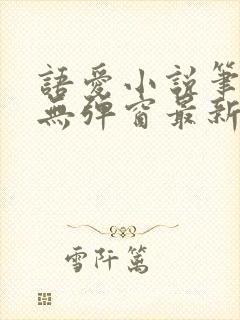 語愛小說筆
無彈窗最新
雪阡篱